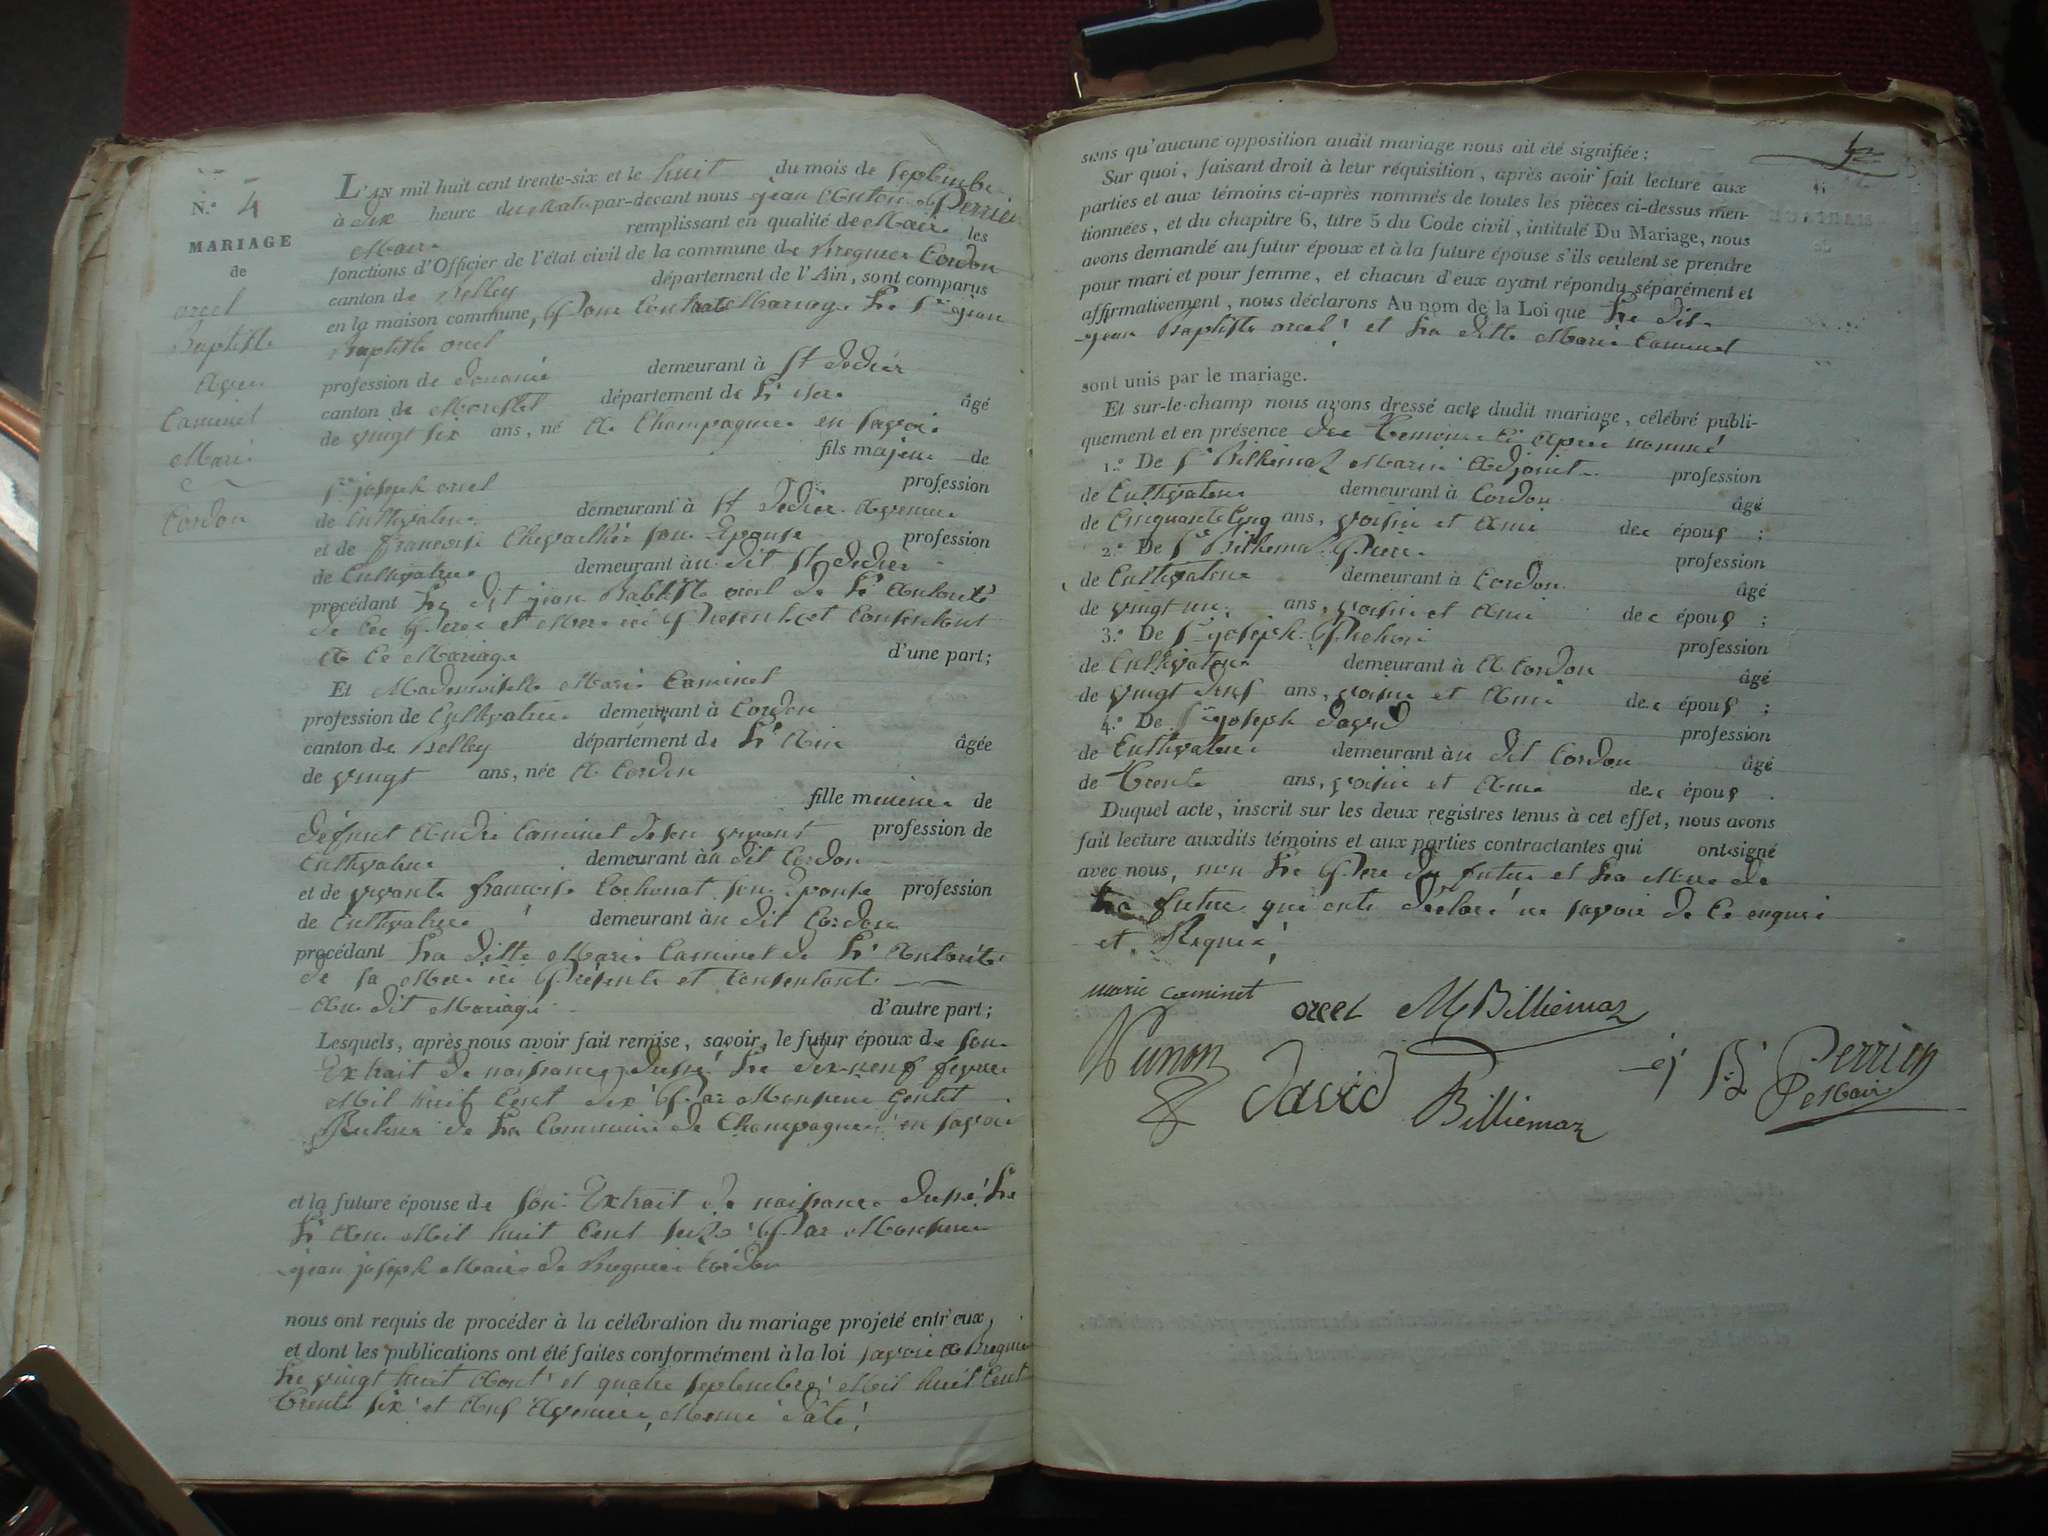 N.º 4
MARIAGE
de
orcel
Baptiste
Caminet
Marie
Cordon
L'AN mil huit cent trente-six et le huit du mois de septembre
à dix heure du Matin par-devant nous jean Antoine Perrier
Maire remplissant en qualité de Maire les
fonctions d'Officier de l'état civil de la commune de Bregnier Cordon
canton de Belley département de l'Ain, sont comparus
en la maison commune, Pour Contrate Mariage Le Sr jean
Baptiste orcel
profession de douanié demeurant à St didier
canton de Morestel département de L'isere âgé
de vingt six ans, né A Champagneu en savoie
fils majeur de
Sr joseph orcel profession
de Cultivateur demeurant à St didier Avenieu
et de francoise Chevallier son Epouse profession
de Cultivatrice demeurant au dit St didier
procédant Le dit jean Babtiste orcel de L'Autorité
de Ces Pere et Mere ici Present et Consentant
A Ce Mariage d'une part;
Et Mademoiselle Marie Caminet
profession de Cultivatrice demeurant à Cordon
canton de Belley département de L'Ain âgée
de vingt ans, née A Cordon
fille mineure de
défunt André Caminet de son vivant profession de
Cultivateur demeurant au dit Cordon
et de vivante francoise Cochonat son Epouse profession
de Cultivatrice demeurant au dit Cordon
procédant La ditte Marie Caminet de L'Autorité
de sa Mere ici Présente et Consentante
Au dit Mariage d'autre part;
Lesquels, après nous avoir fait remise, savoir, le futur époux de son
Extrait de naissance dressé Le dix-neuf fevrier
Mil huit Cent dix Par Monsieur Gentet
Recteur de La Commune de Champagneu en savoie
et la future épouse de son Extrait de naissance dressé Le
L'An Mil huit Cent seize Par Monsieur
jean joseph Maire de Bregnier Cordon
nous ont requis de procéder à la célébration du mariage projeté entr'eux,
et dont les publications ont été faites conformément à la loi savoir A Bregnier
Le vingt huit Aout et quatre septembre Mil huit Cent
trente six et Aux Avenieu Meme date
sans qu'aucune opposition audit mariage nous ait été signifiée:
Sur quoi, faisant droit à leur réquisition, après avoir fait lecture aux
parties et aux témoins ci-après nommés de toutes les pièces ci-dessus men-
tionnées, et du chapitre 6, titre 5 du Code civil, intitulé Du Mariage, nous
avons demandé au futur époux et à la future épouse s'ils veulent se prendre
pour mari et pour femme, et chacun d'eux ayant répondu séparément et
affirmativement, nous déclarons Au nom de la Loi que Le dit
jean Baptiste orcel et La ditte Marie Caminet
sont unis par le mariage.
Et sur-le-champ nous avons dressé acte dudit mariage, célébré publi-
quement et en présence des temoins Ci Après nommé
1.º De Sr Billiemaz Marin Adjoint profession
de Cultivateur demeurant à Cordon âgé
de Cinquante Cinq ans, voisin et Ami des époux ;
2.º De Sr Billiemaz Pierre profession
de Cultivateur demeurant à Cordon âgé
de vingt un ans, voisin et Ami des époux ;
3.º De Sr joseph profession
de Cultivateur demeurant à A Cordon âgé
de vingt deux ans, voisin et Ami des époux ;
4.º De Sr joseph david profession
de Cultivateur demeurant au dit Cordon âgé
de trente ans, voisin et Ami des époux .
Duquel acte, inscrit sur les deux registres tenus à cet effet, nous avons
fait lecture auxdits témoins et aux parties contractantes qui ont signé
avec nous, non Le Pere du futur et La Mere de
La future qui ont déclaré ne savoir de Ce enquis
et Requis
marie caminet orcel M Billiemaz
david Billiemaz Perrier
Maire